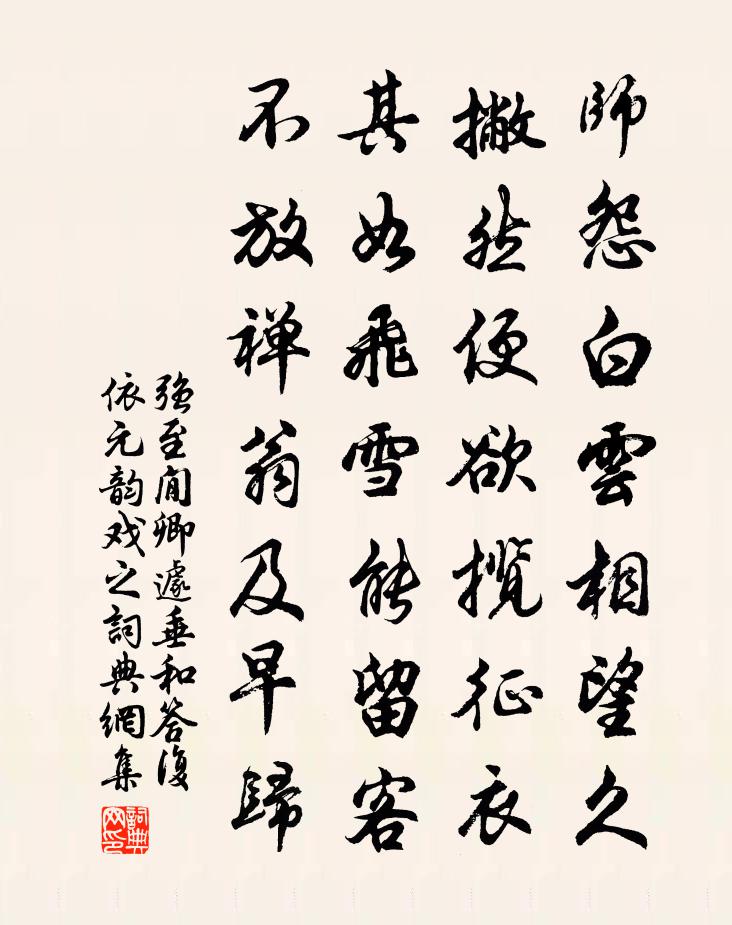 師怨白雲相望久
撇然便欲揽征衣
其如飛雪能留客
不放禅翁及早歸
强至閒卿遽垂和答復
依元韵戏之詞典網集
詞典网印